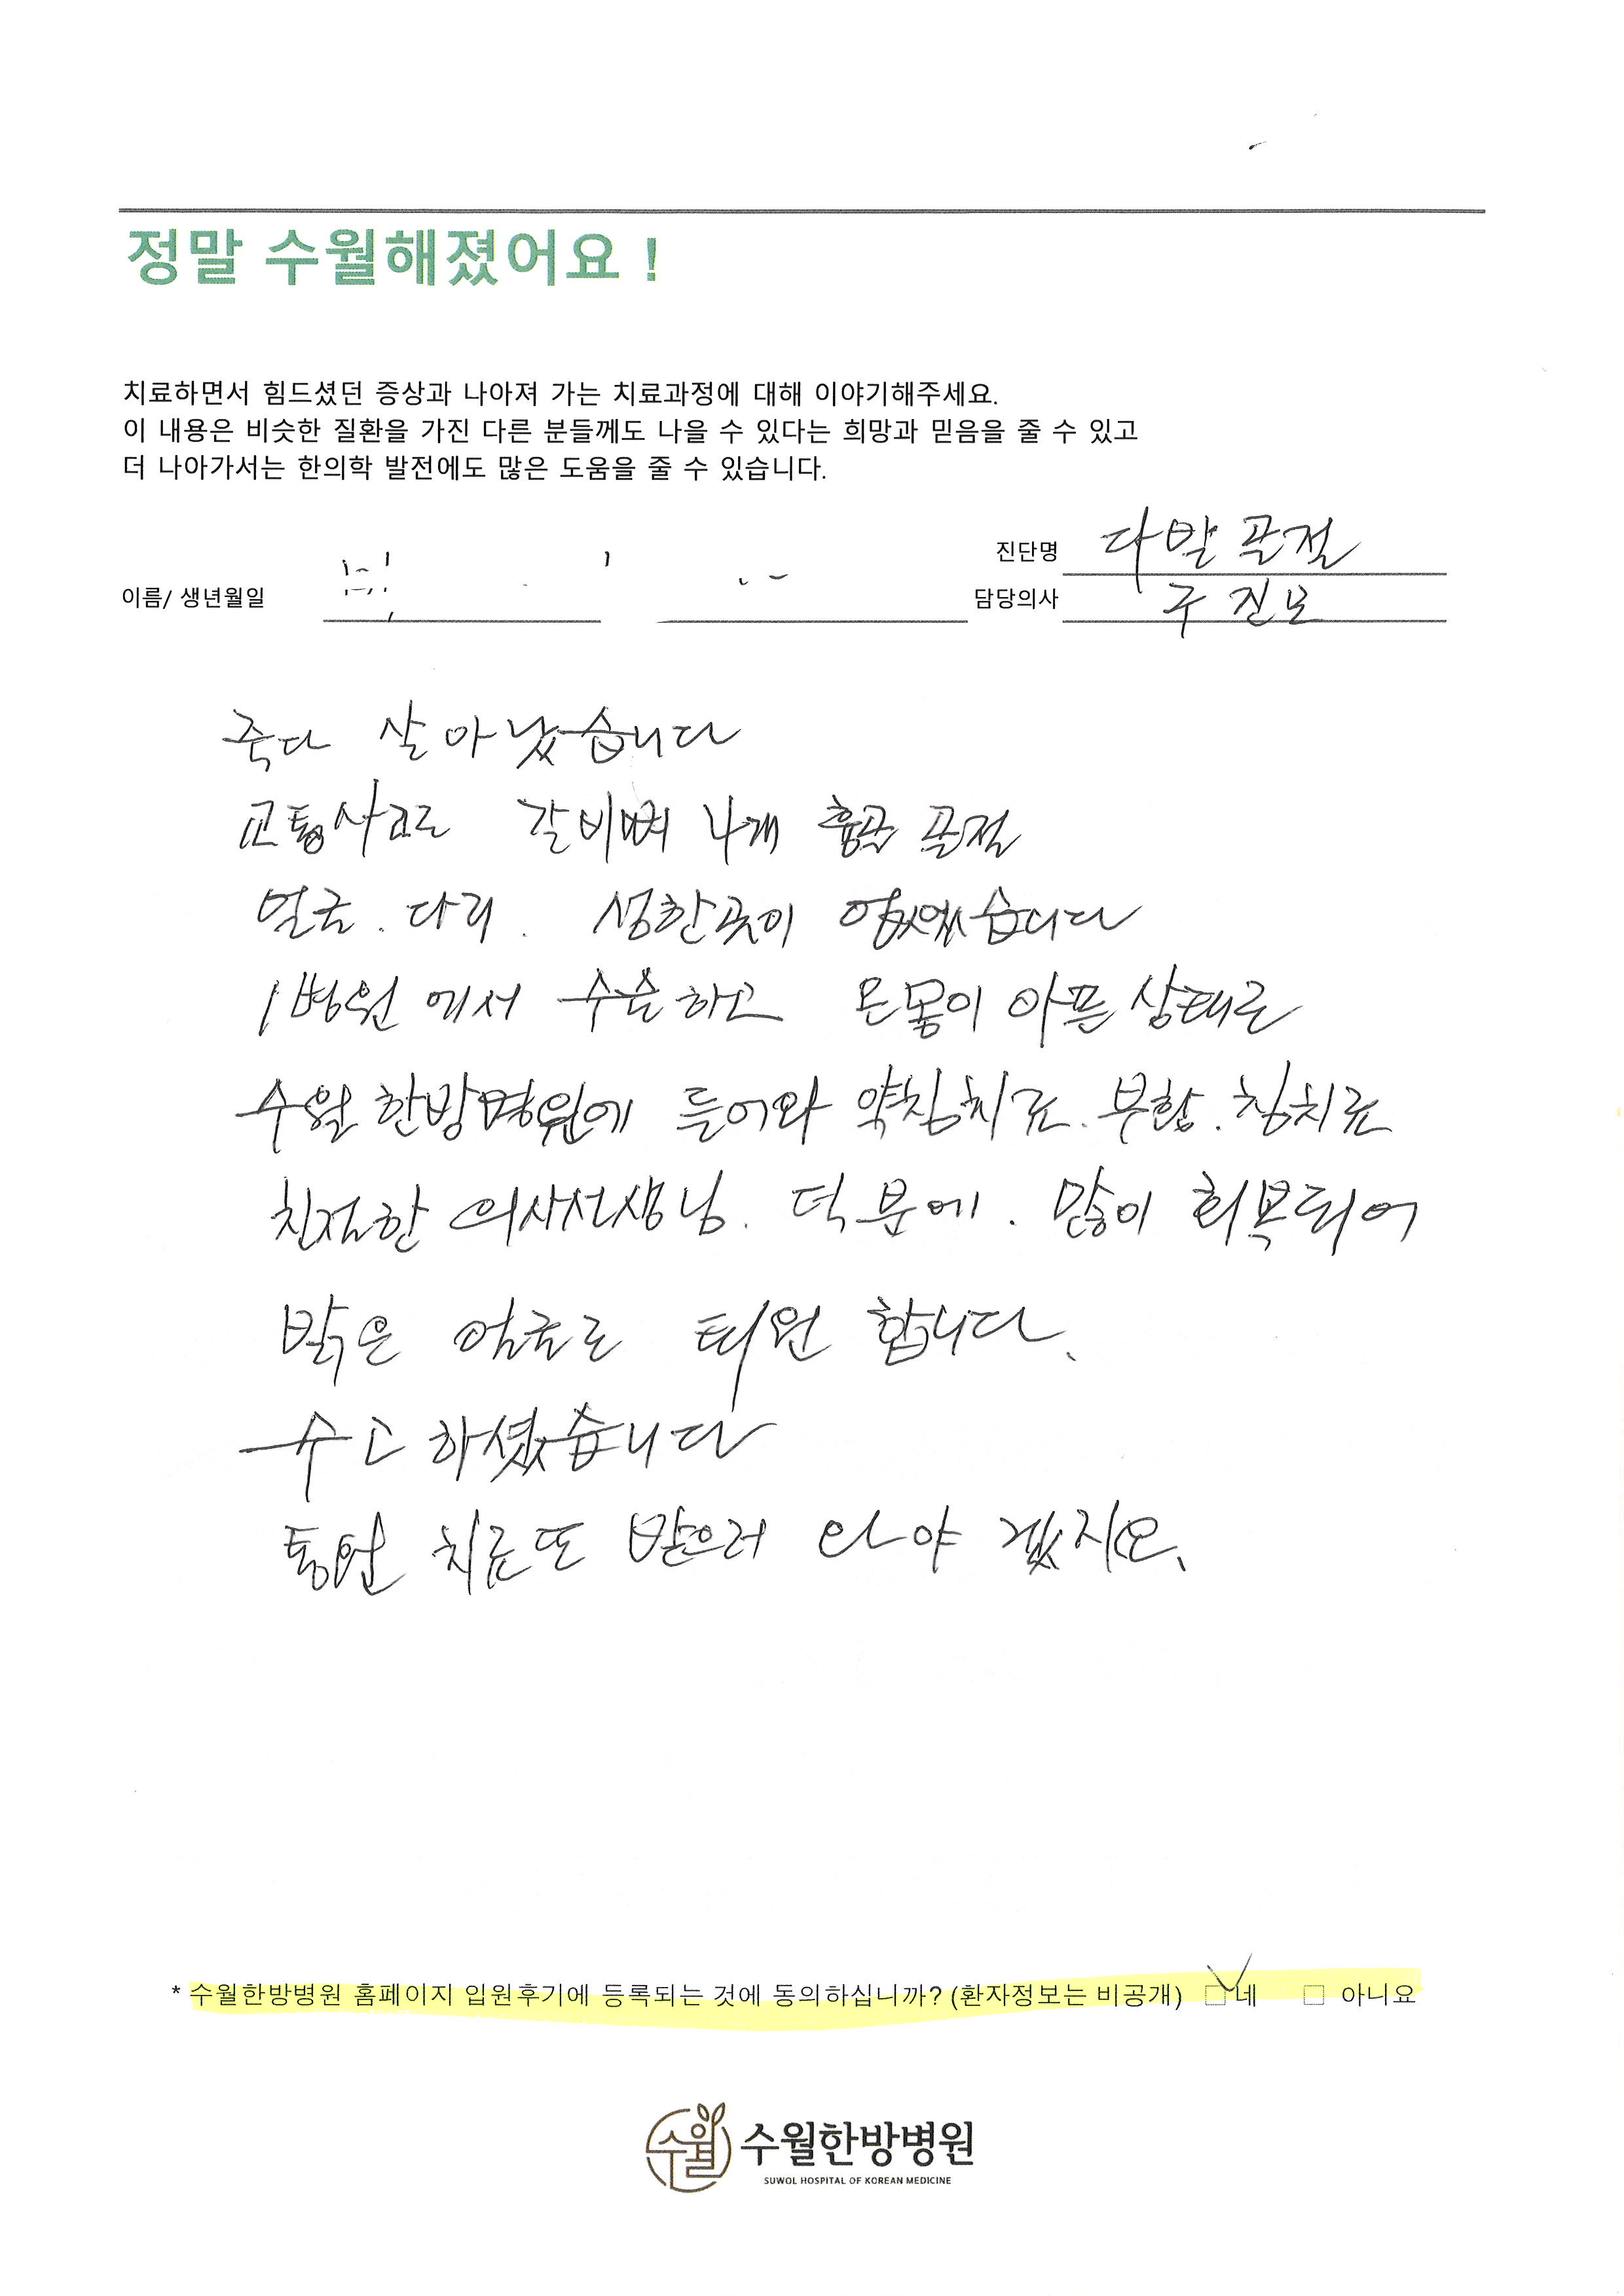 정말 수월해졌어요 !
치료하면서 힘드셨던 증상과 나아져 가는 치료과정에 대해 이야기해주세요.
이 내용은 비슷한 질환을 가진 다른 분들께도 나을 수 있다는 희망과 믿음을 줄 수 있고
더 나아가서는 한의학 발전에도 많은 도움을 줄 수 있습니다.
진단명 다발 골절
이름/ 생년월일
담당의사 구 진모
죽다 살아났습니다
교통사고로 갈비뼈 4개 흉골 골절
얼굴. 다리. 성한곳이 없었습니다
1병원에서 수술하고 온몸이 아픈 상태로
수월한방병원에 들어와 약침치료. 부항. 침치료
친절한 의사선생님. 덕분에. 많이 회복되어
밝은 얼굴로 퇴원 합니다.
수고하셨습니다
통원 치료또 받으러 와야 겠지요.
* 수월한방병원 홈페이지 입원후기에 등록되는 것에 동의하십니까? (환자정보는 비공개) ☑ 네 □ 아니요
수월 수월한방병원
SUWOL HOSPITAL OF KOREAN MEDICINE